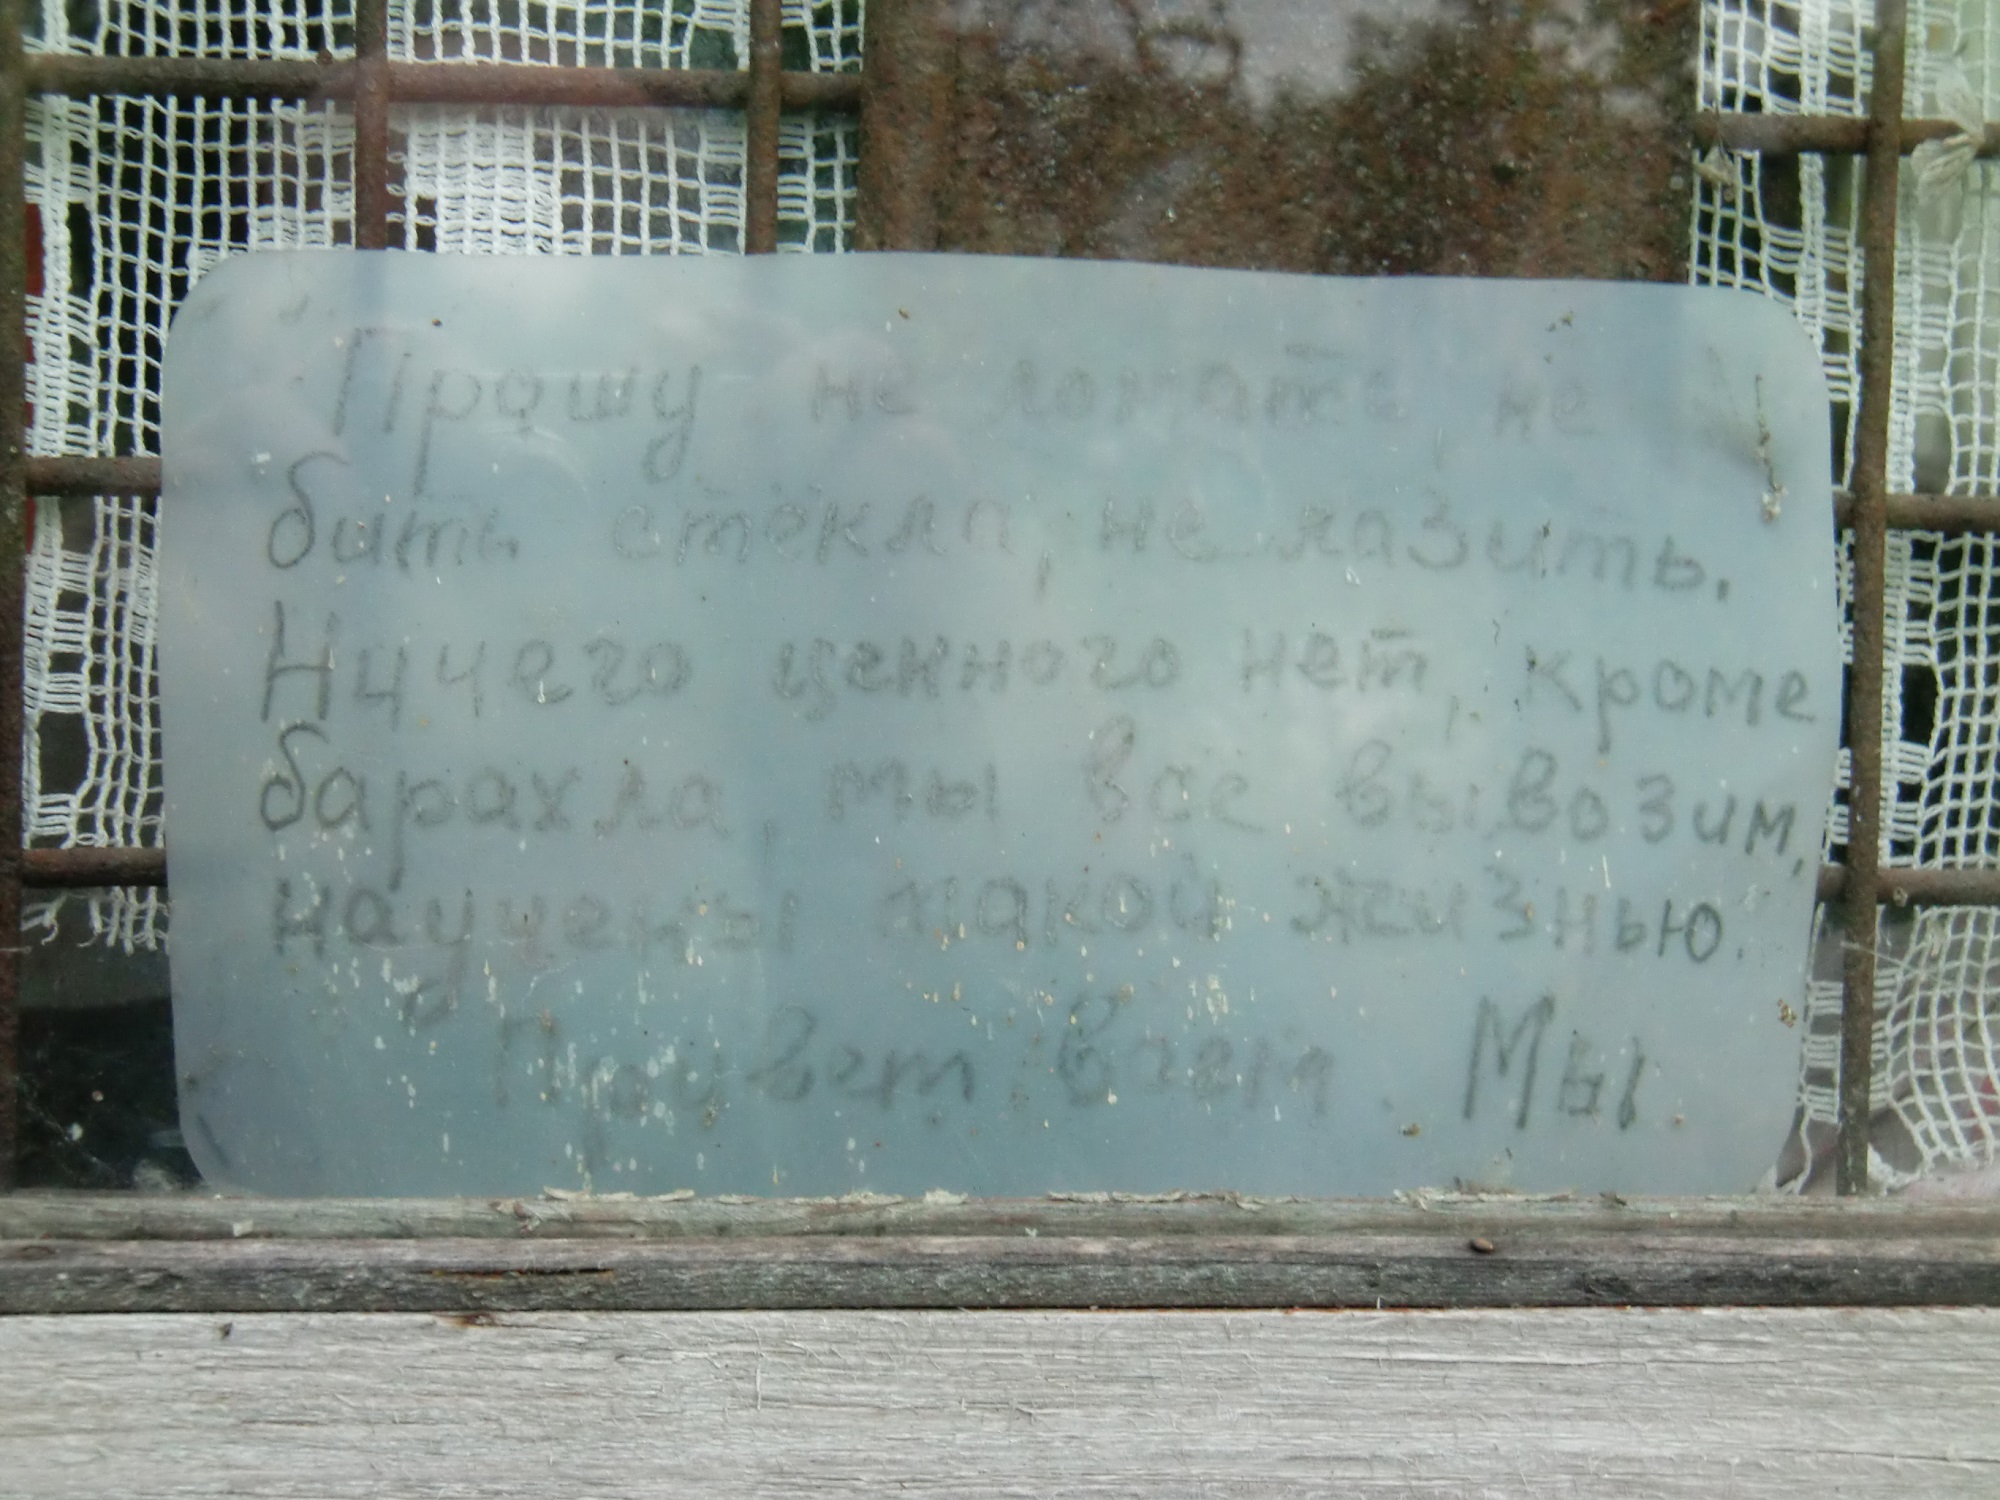 Прошу не ломать не
бить стёкла, не лазить.
Ничего ценного нет, кроме
барахла, мы все вывозим,
научены такой жизнью.
Привет всем. Мы